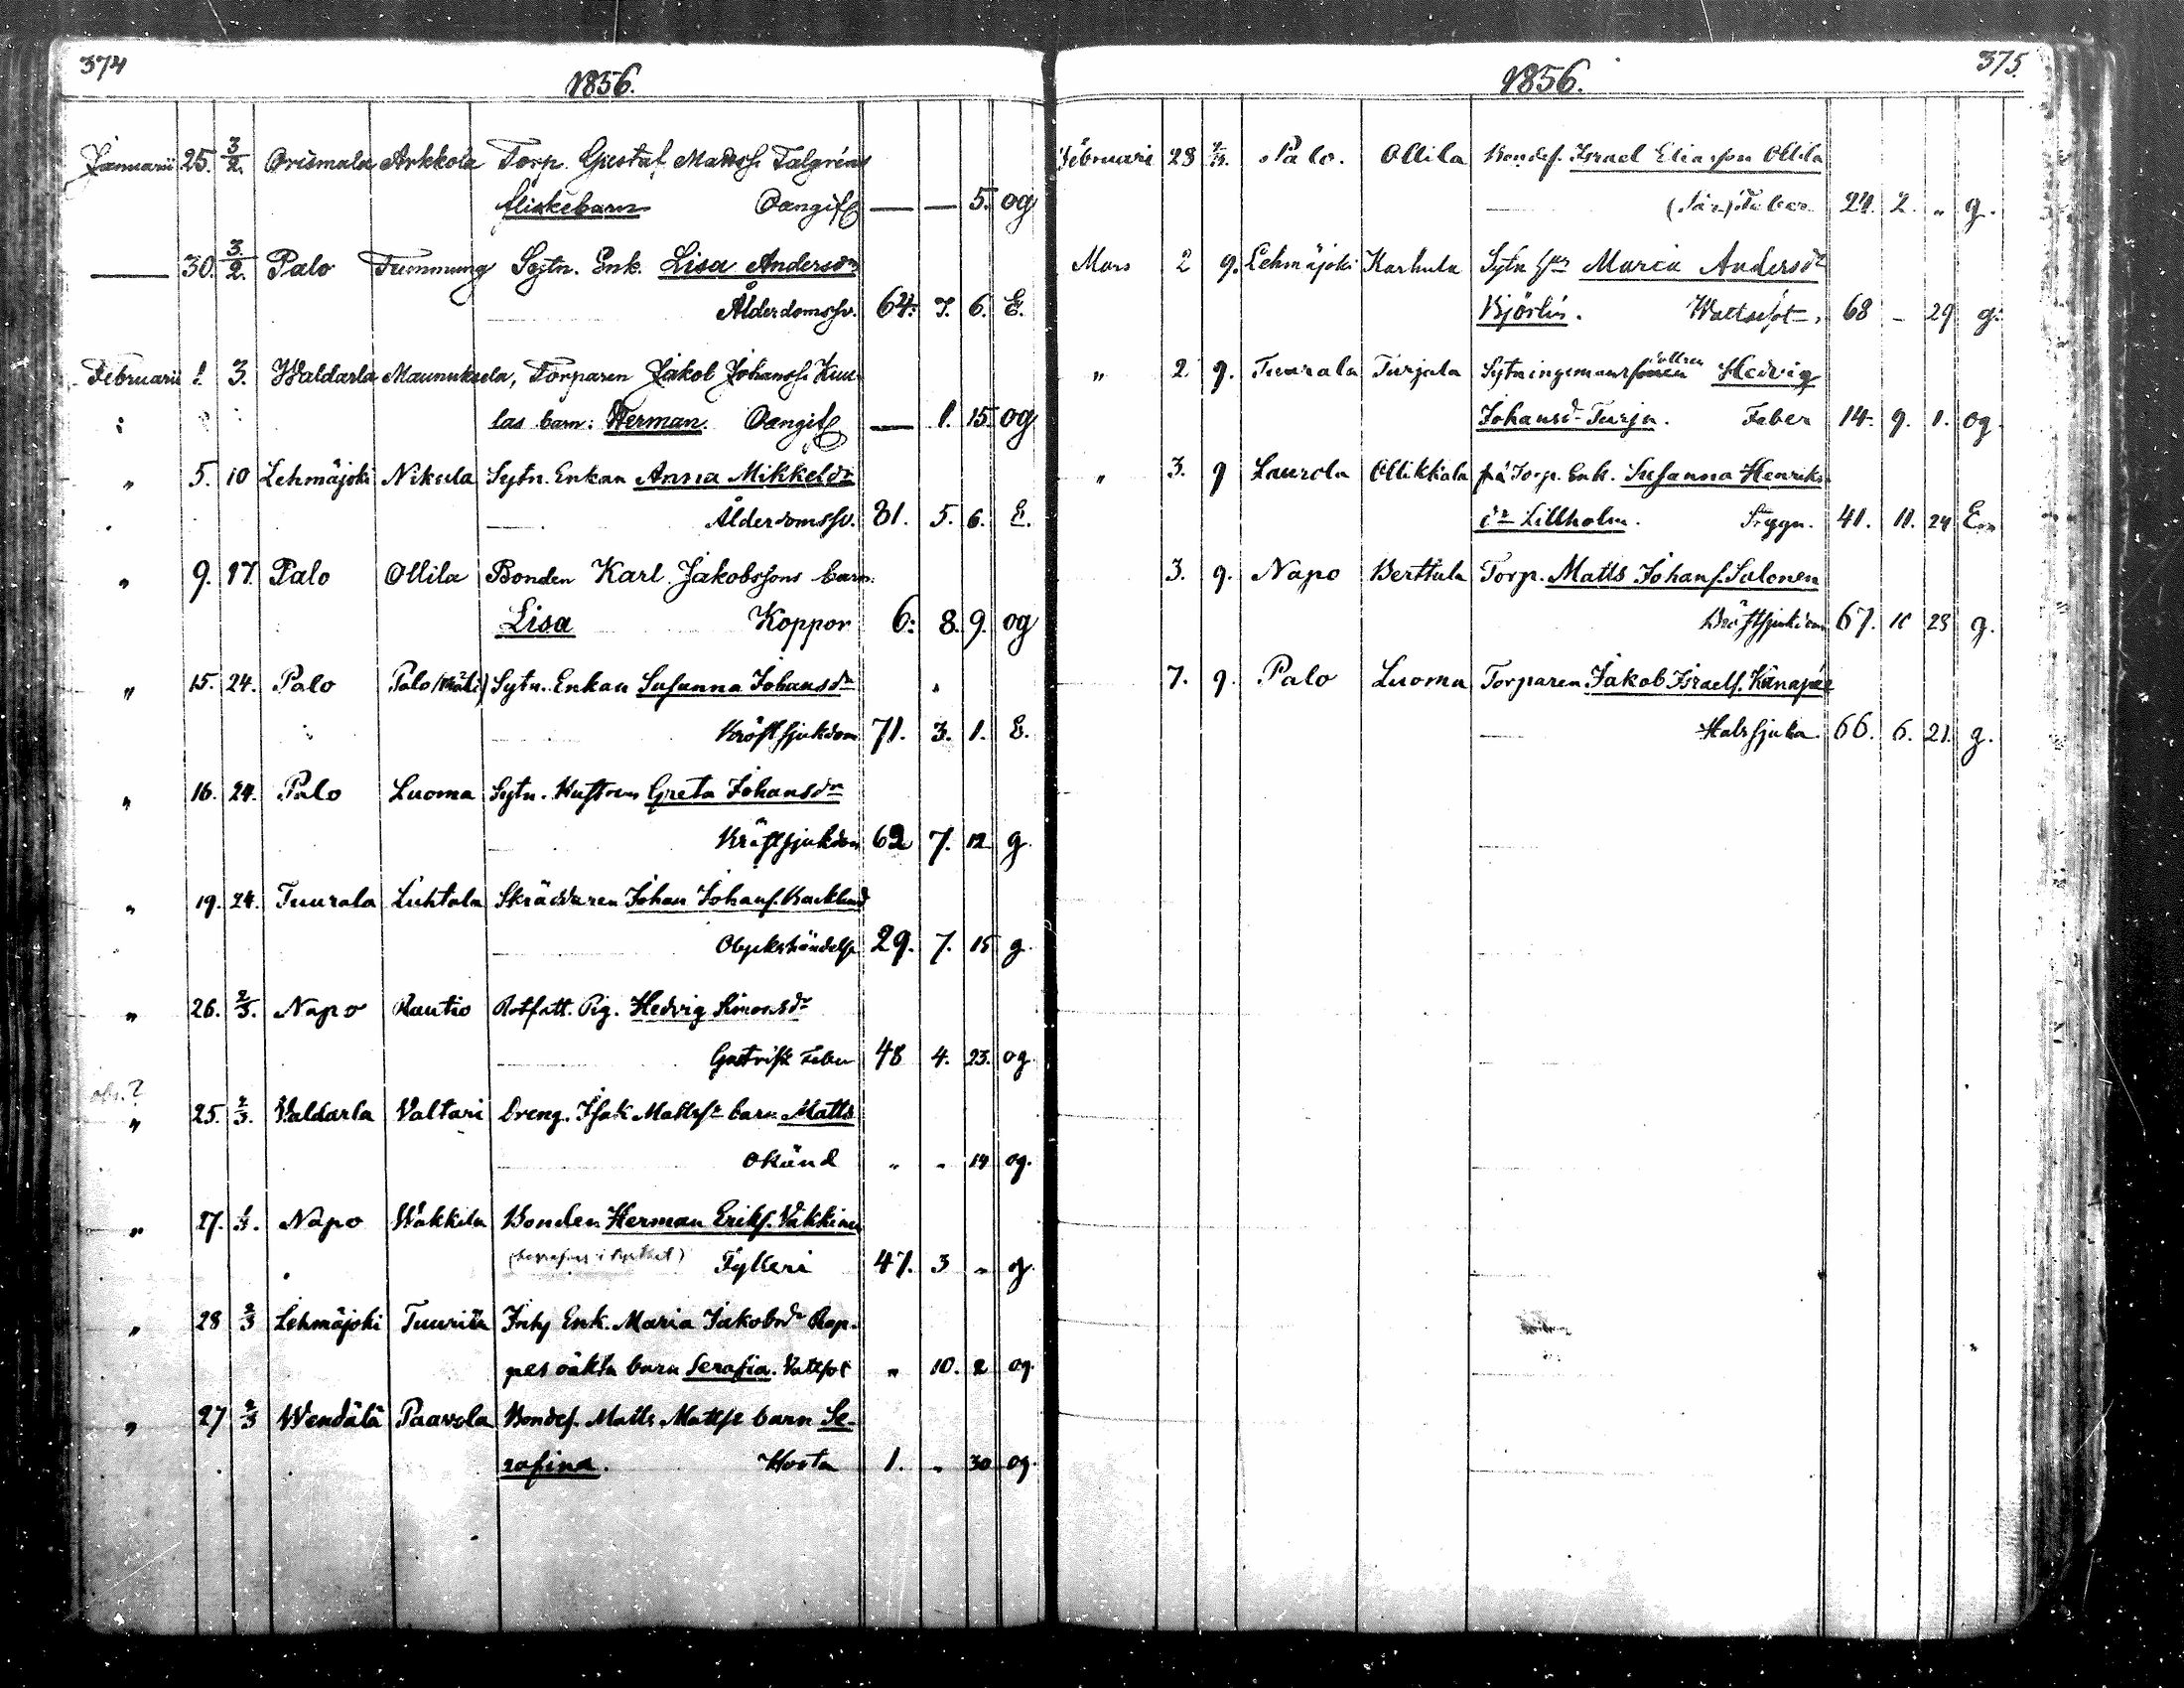 374
1856.
Januarii 25. 3/2. Orismala Arkkola Torp. Gustaf Mattss. Talgréns
flickebarn Oangift — — 5. og
— 30. 3/2. Palo Tummung Sytn. Enk. Lisa Andersdr
Ålderdomssv. 64. 7. 6. E.
Februarii 1. 3. Waldarla Maunuksela, Torparen Jakob Johanss. Kuu-
las barn: Herman. Oangift — 1. 15. og
" 5. 10 Lehmäjoki Nikula Sytn. Enkan Anna Mikkelsdr
Ålderdomssv. 81. 5. 6. E.
" 9. 17. Palo Ollila Bonden Karl Jakobssons barn
Lisa Koppor 6. 8. 9. og
" 15. 24. Palo Palo Sytn. Enkan Susanna Johansdr
Kräftsjukdom 71. 3. 1. E.
" 16. 24. Palo Luoma Sytn. Hustrun Greta Johansdr
Kräftsjukdom 62 7. 12 g.
" 19. 24. Tuurala Luhtala Skräddaren Johan Johans. Backlund
Olyckshändelse 29. 7. 15 g.
" 26. 2/3. Napo Rautio Rotfatt. Pig. Hedvig Simonsdr
Gastrisk Feber 48 4. 23. og
obs.?
" 25. 2/3. Valdarla Valtari Dreng. Isak Mattss barn Matts
Okänd " " 14 og.
" 27. Napo Wäkkilä Bonden Herman Eriks. Väkkinen
Fylleri 47. 3 " g.
" 28 2/3 Lehmäjoki Tuurila Inhs Enk. Maria Jakobsdr Rop-
pes oäkta barn Serafia. Vattsot " 10. 2 og.
" 27 2/3 Wendälä Paavola Bondes. Matts Mattss barn Se-
rafina. Hosta 1. " 30 og.
375.
1856.
Februari 28 Palo. Ollila Bondes. Israel Eliasson Ollila
Feber 24. 2. " g.
Mars 2 9. Lehmäjoki Karhula Sytn Maria Andersdr
Björlin. Wattusot 68 - 29 g.
" 2. 9. Tuurala Turjala Sytningsmans dottren Hedvig
Johansd Turja. Feber 14. 9. 1. og.
" 3. 9 Laurola Ollikkala Torp. Enk. Susanna Henriks-
dr Lillholm. Stygn. 41. 11. 24 En
3. 9. Napo Berttula Torp. Matts Johans. Salonen
Bröstsjukdom 67. 10 23 g.
7. 9. Palo Luoma Torparen Jakob Israels. Känapää
Halssjuka. 66. 6. 21. g.